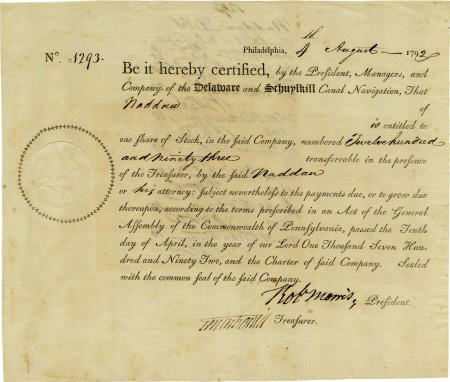 Philadelphia, 4th August 1792
No. 1293.
Be it hereby certified, by the President, Managers, and
Company of the Delaware and Schuylkill Canal Navigation, That
Naddau
of
is entitled to
one share of Stock, in the said Company, numbered Twelve hundred
and Ninety three transferrable in the presence
of the Treasurer, by the said Naddau
or his attorney: subject nevertheless to the payments due, or to grow due
thereupon, according to the terms prescribed in an Act of the General
Assembly of the Commonwealth of Pennsylvania, passed the Tenth
day of April, in the year of our Lord One Thousand Seven Hun-
dred and Ninety Two, and the Charter of said Company. Sealed
with the common seal of the said Company.
Rob Morris, President.
Treasurer.